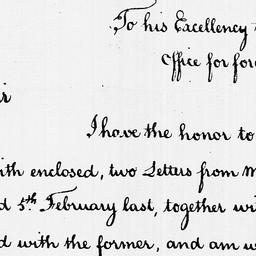 To his Excellency
Office for
I have the honor to
enclosed, two Letters from
5th February last, together
with the former, and am